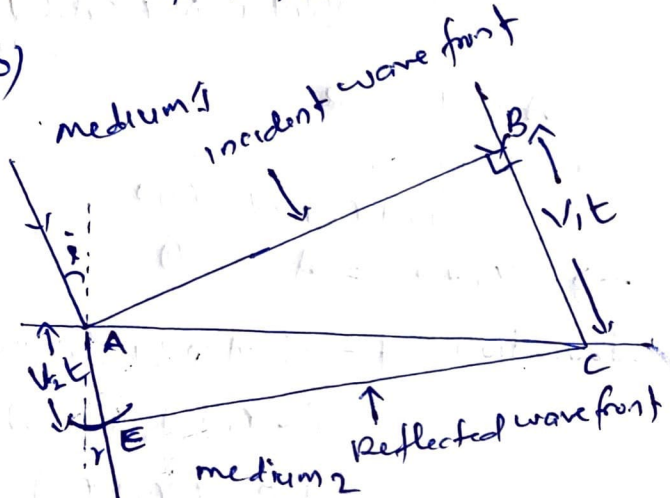 b)
medium 1
incident wave front
B
V₁t
i
A
V₂t
C
E
r
Reflected wave front
medium 2